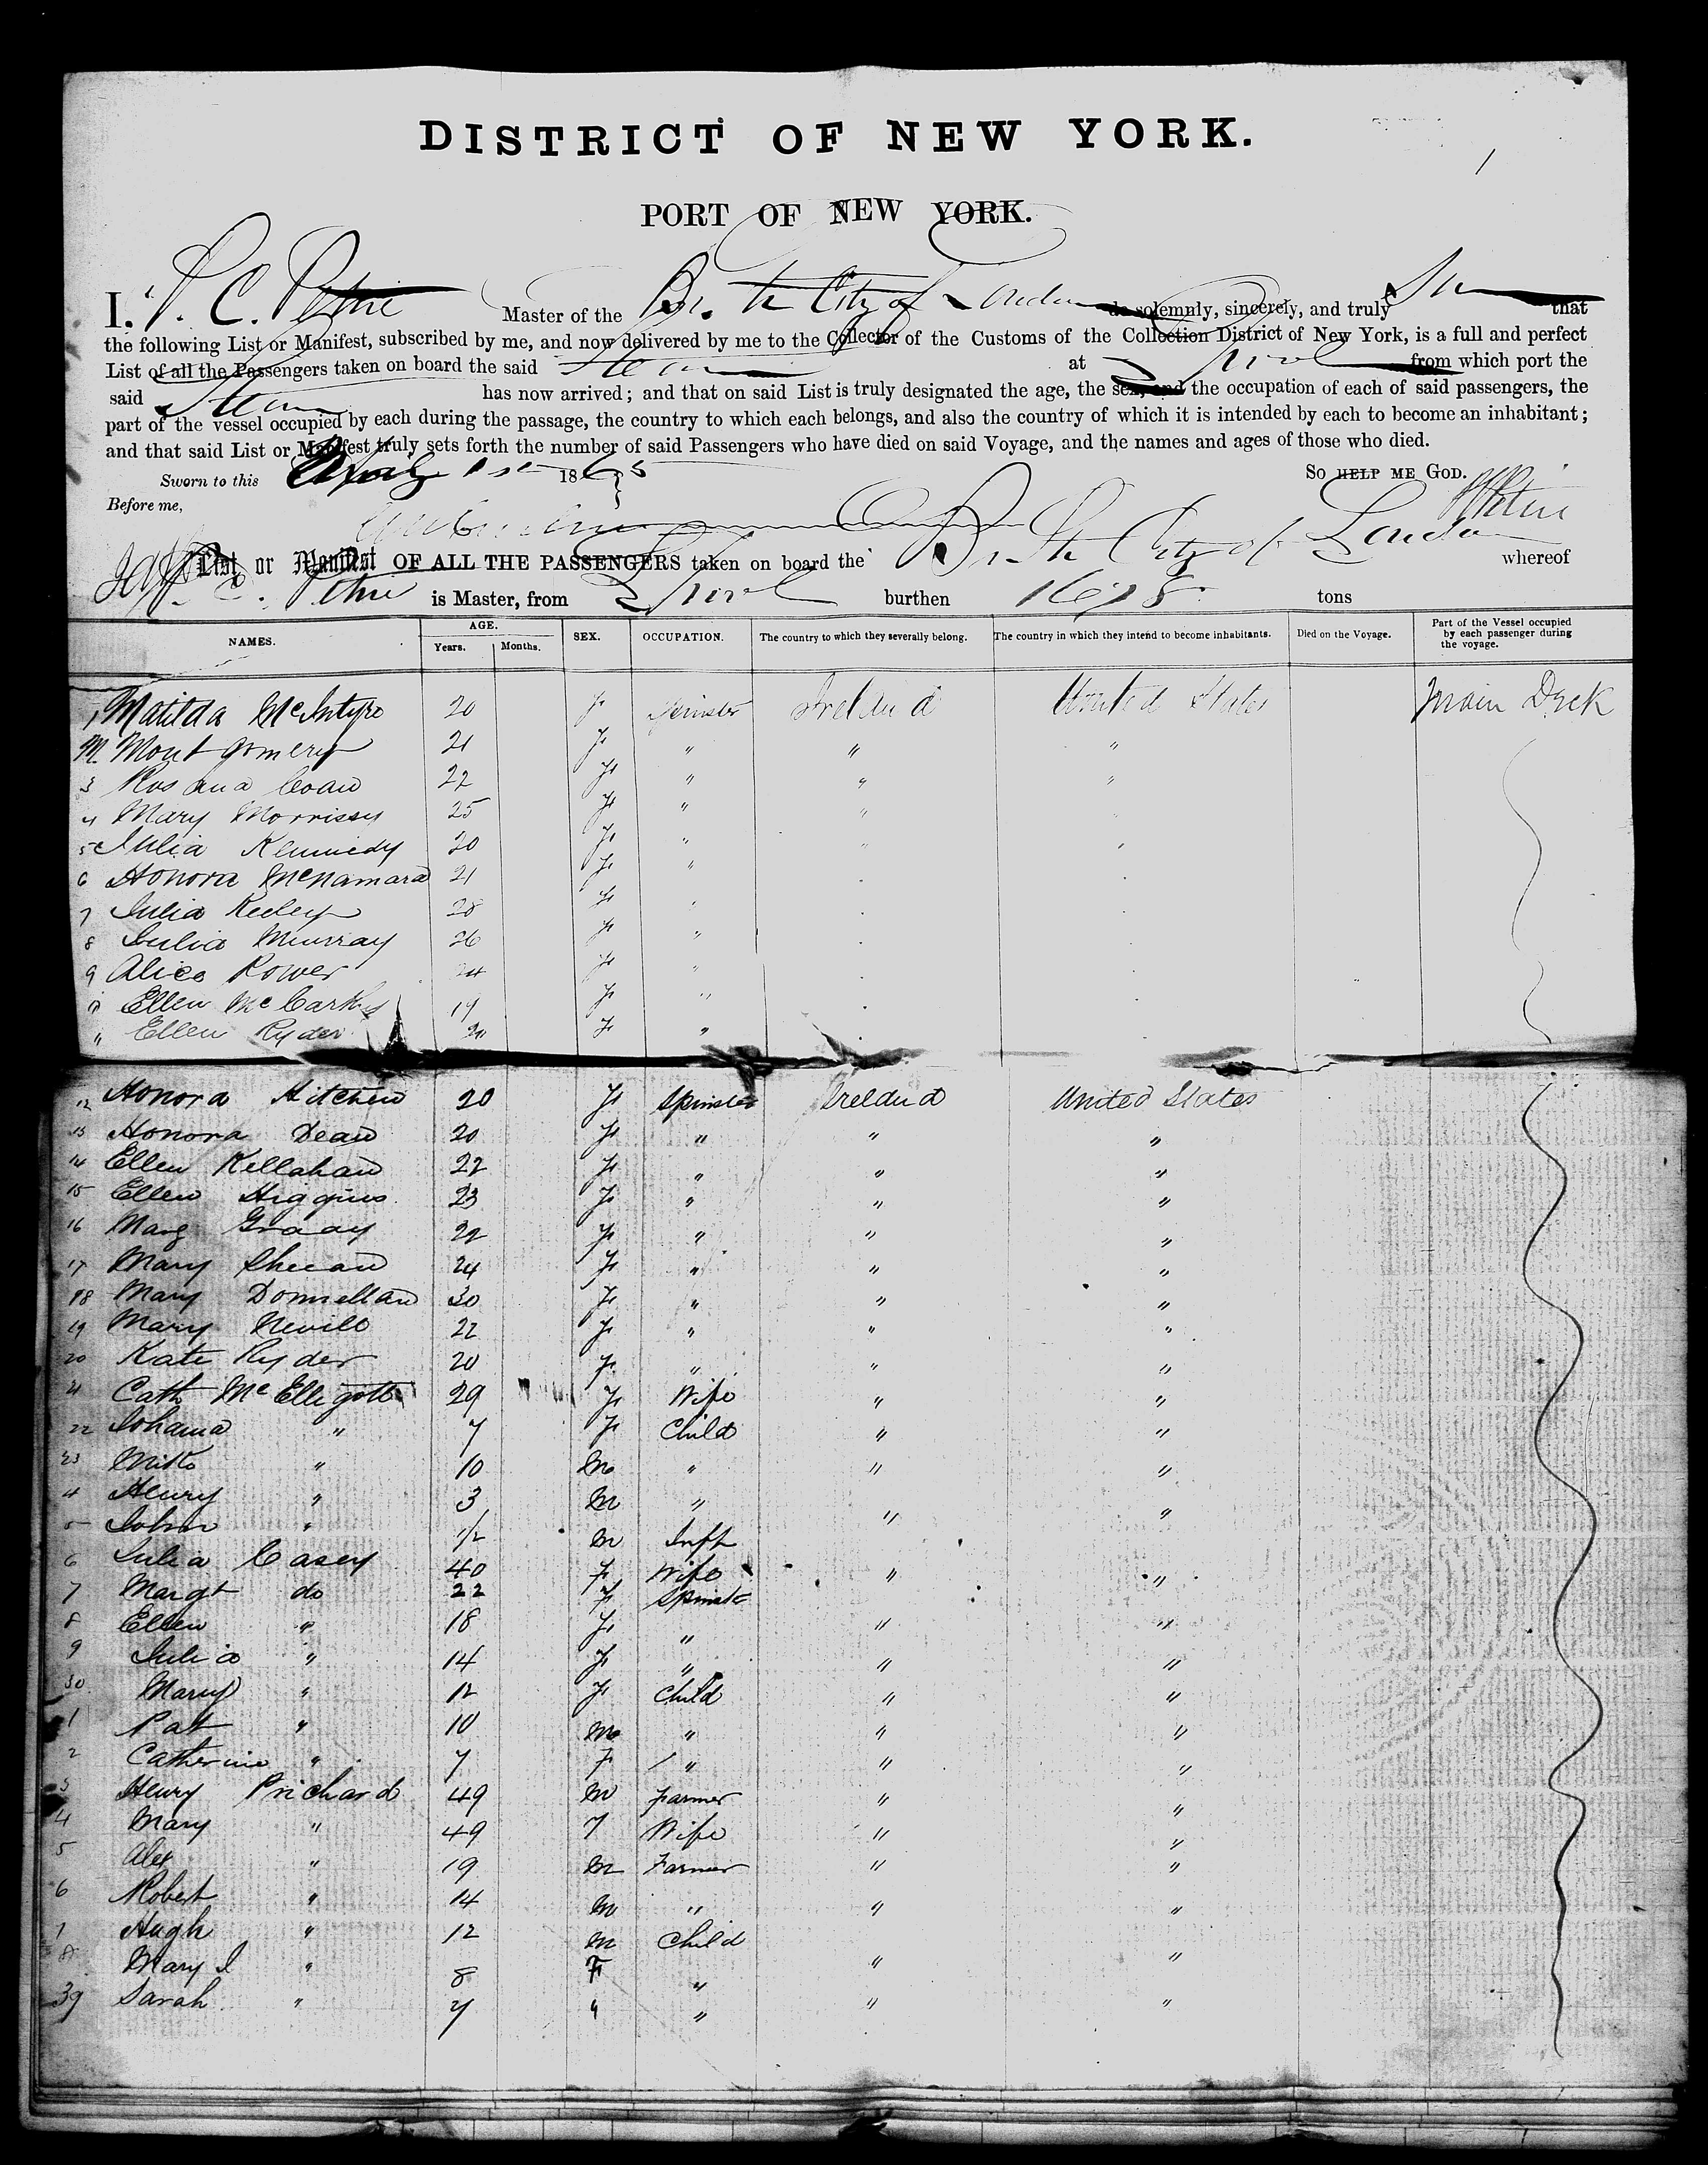 DISTRICT OF NEW YORK.
1
PORT OF NEW YORK.
I. C. Petrie Master of the Br. Str City of London do solemnly, sincerely, and truly that
the following List or Manifest, subscribed by me, and now delivered by me to the Collector of the Customs of the Collection District of New York, is a full and perfect
List of all the Passengers taken on board the said Steamer at L'pool from which port the
said Steamer has now arrived; and that on said List is truly designated the age, the sex, and the occupation of each of said passengers, the
part of the vessel occupied by each during the passage, the country to which each belongs, and also the country of which it is intended by each to become an inhabitant;
and that said List or Manifest truly sets forth the number of said Passengers who have died on said Voyage, and the names and ages of those who died.
Sworn to this 1st 1865 So HELP ME GOD.
Before me, Petrie
List or Manifest OF ALL THE PASSENGERS taken on board the Br. Str City of London whereof
C. Petrie is Master, from L'pool burthen tons
NAMES. AGE. Years. Months. SEX. OCCUPATION. The country to which they severally belong. The country in which they intend to become inhabitants. Died on the Voyage. Part of the Vessel occupied by each passenger during the voyage.
1 Matilda McIntyre 20 F Spinster Ireland United States Main Deck
M. Montgomery 21 F " " "
3 Rosanna Coan 22 F " " "
4 Mary Morrissy 25 F " "
5 Julia Kennedy 20 F " "
6 Honora McNamara 21 F "
7 Julia Keeley 28 F "
8 Julia Murray 26 F "
9 Alice Power 24 F "
10 Ellen McCarthy 19 F "
11 Ellen Ryder 20 F "
12 Honora Hitchen 20 F Spinster Ireland United States
13 Honora Dean 20 F " " "
14 Ellen Kellahan 22 F " " "
15 Ellen Higgins 23 F " " "
16 Marg Grady 22 F " " "
17 Mary Sheean 24 F " " "
18 Mary Donnellan 30 F " " "
19 Mary Nevill 22 F " " "
20 Kate Ryder 20 F " " "
21 Cath McElligott 29 F Wife " "
22 Johanna " 7 F Child " "
23 " 10 M " " "
4 Henry " 3 M " " "
5 John " 1/2 M Inft
6 Julia Casey 40 F Wife " "
7 Margt do 22 F Spinster
8 Ellen " 18 F " " "
9 Julia " 14 F " " "
30 Mary " 12 F Child " "
1 Pat " 10 M " " "
2 Catherine " 7 F " " "
3 Henry Prichard 49 M Farmer " "
4 Mary " 49 F Wife " "
5 Alex " 19 M Farmer " "
6 Robert " 14 M " " "
7 Hugh " 12 M Child
8 Mary J " 8 F " " "
39 Sarah " 7 " " " "